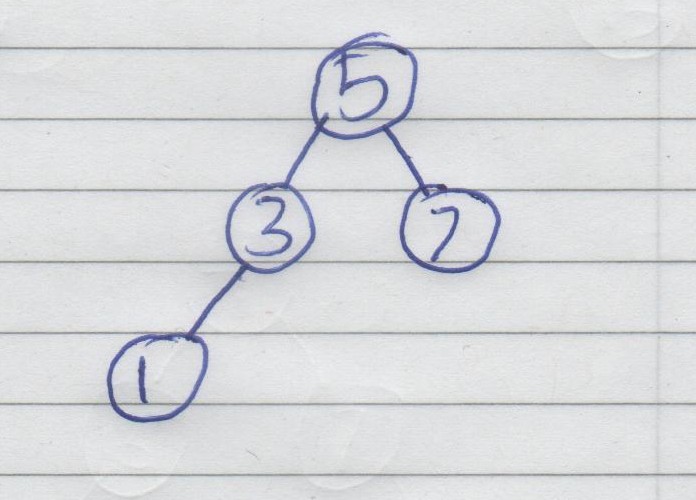 5
3 7
1